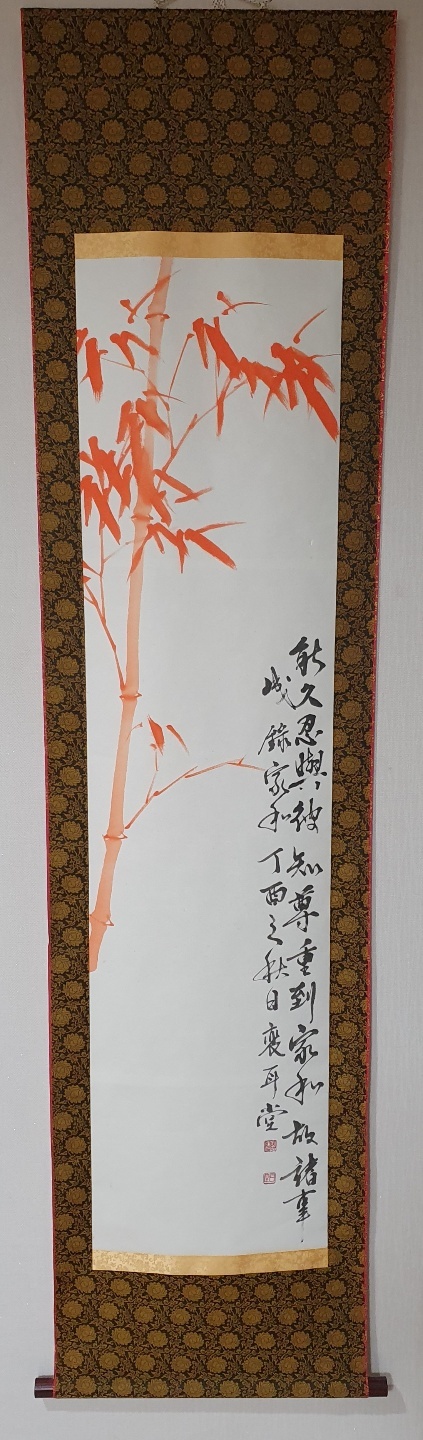 能久忍與彼知尊重到家和故諸事
成 錄家和 丁酉之秋日 裵耳堂